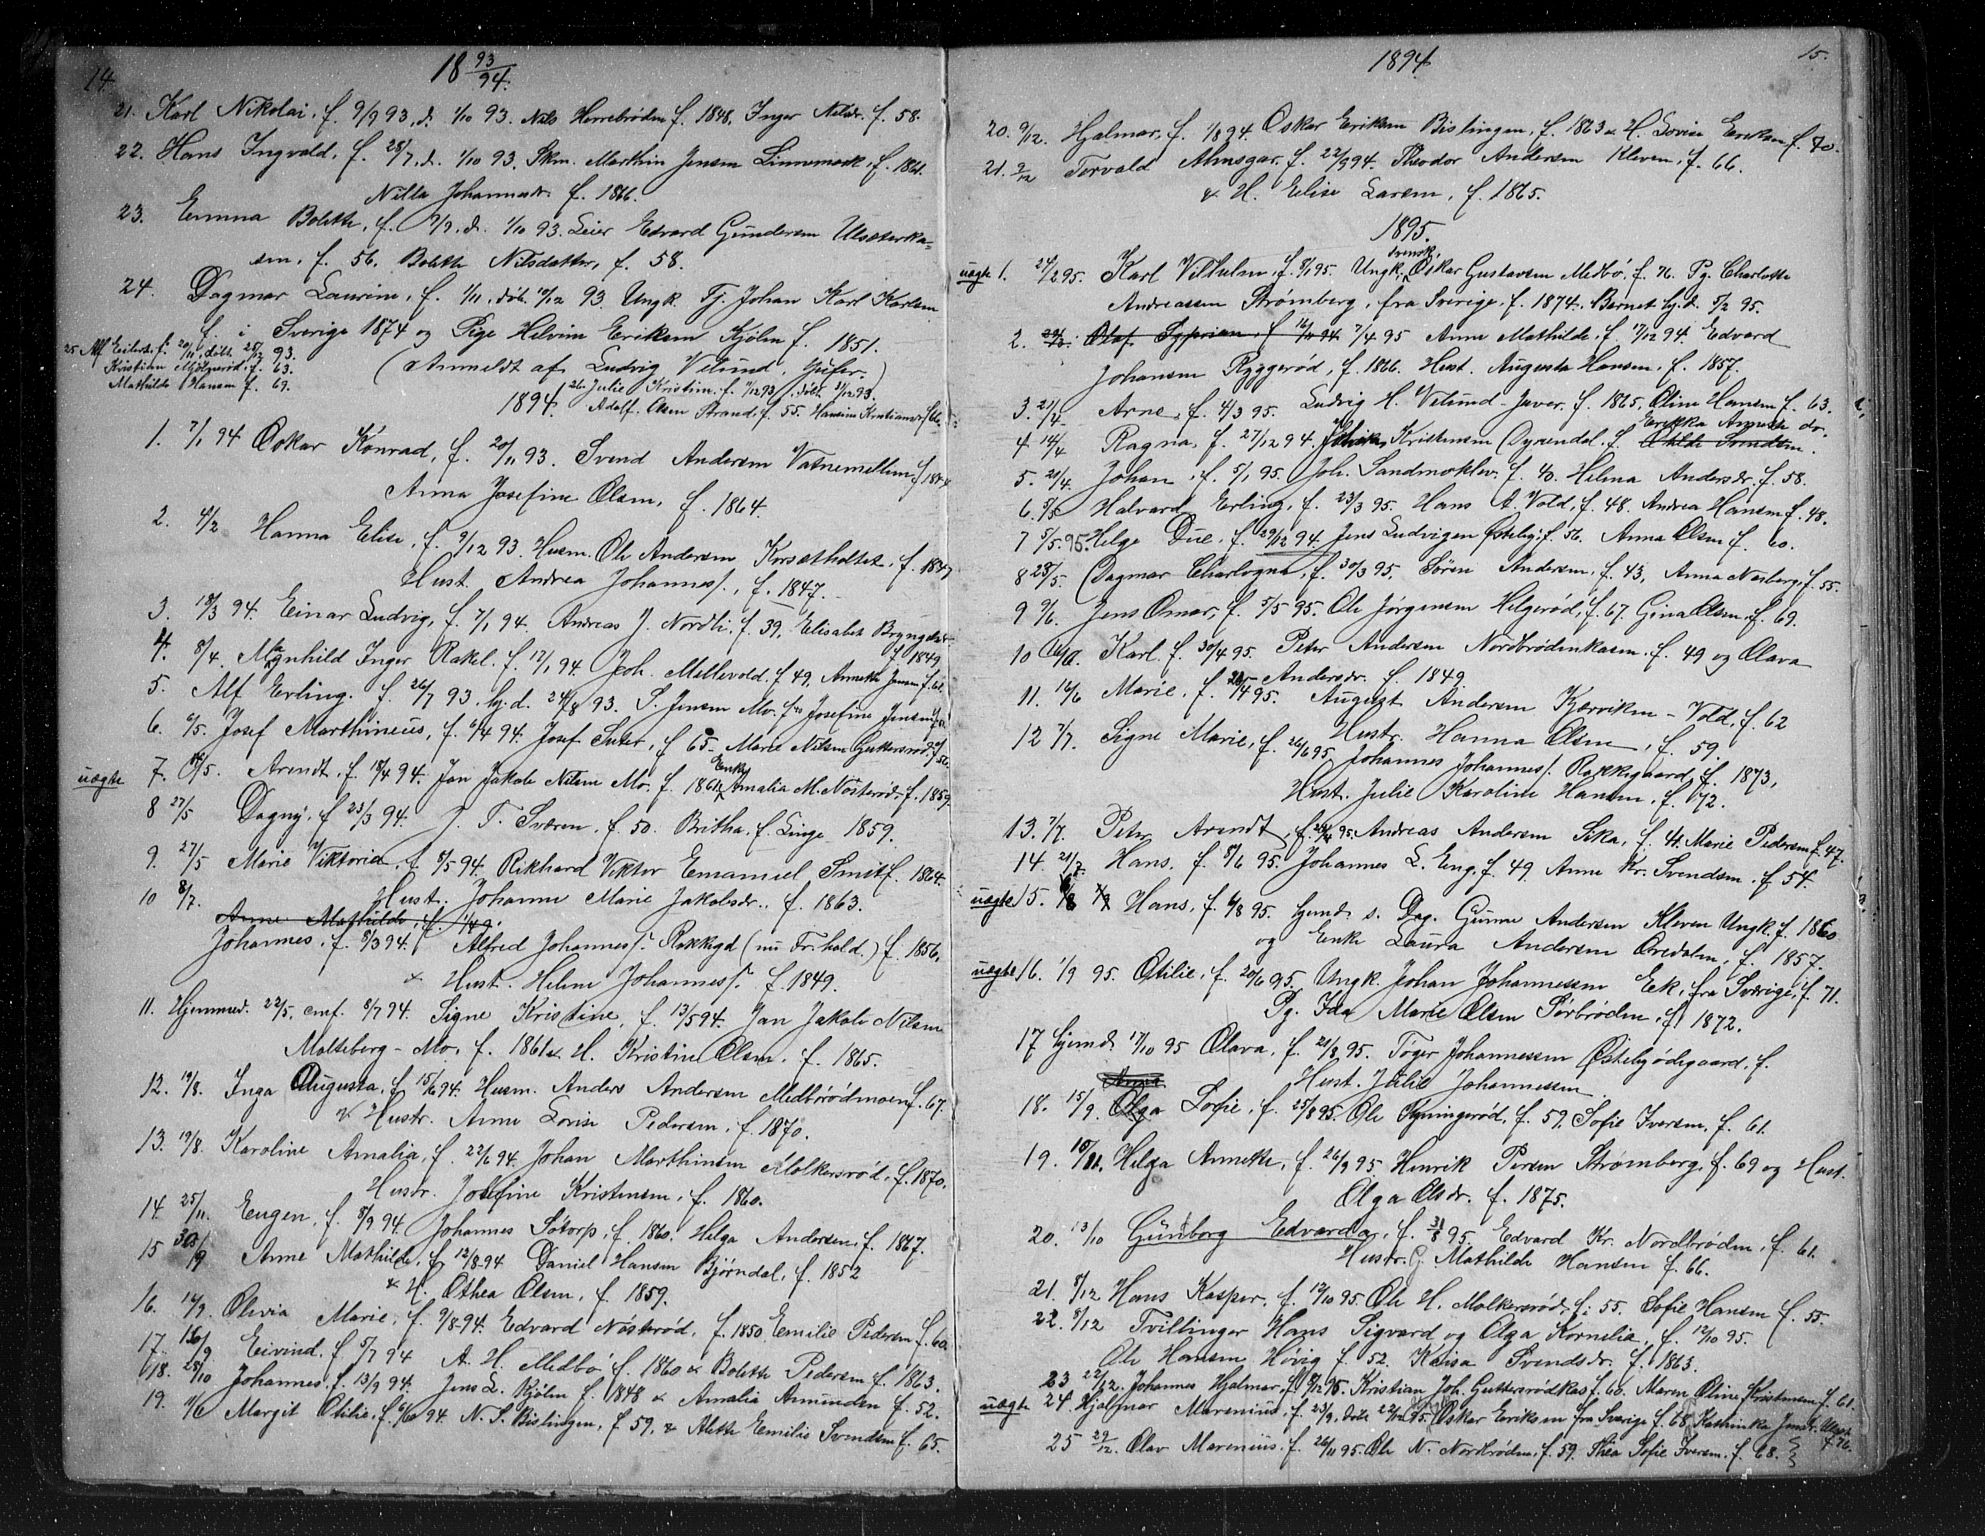 14
18 93/94.
21. Karl Nikolai, f. 9/9 93, d. 1/10 93. Nils Herrebrøden f. 1848, Inger Nilsdr. f. 58.
22. Hans Ingvald, f. 28/7, d. 1/10 93. Skm. Marthin Jensen Linnemark, f. 1861.
Nilla Johannesdr. f. 1866.
23. Emma Bolette, f. 9/9, d. 1/10 93. Leier Edvard Gundersen
sen, f. 56. Bolette Nilsdatter, f. 58.
24. Dagmar Laurine, f. 1/11, døbt 10/12 93 Ungk. Tj. Johan Karl Karlsen
f. i Sverige 1874 og Pige Helvine Eriksen Kjølen f. 1851.
25 Alf Eilert f. 20/11, døbt 25/12 93.
Kristian Mjølnerød, f. 63.
Mathilde Hansen f. 69.
(Anmeldt af Ludvig Vilund, Gjæfer.)
26. Julie Kristine, f. 7/12 93, døbt 31/12 93.
Adolf Olsen Strand, f. 55. Hansine Kristiansen f.
1894.
1. 7/1 94 Oskar Konrad, f. 20/11 93. Svend Andersen Vatnemellem f.
Anna Josefine Olsen, f. 1864.
2. 4/2 Hanna Elise, f. 9/12 93. Husm. Ole Andersen Korsetholtet, f. 1847
Hust. Andrea Johannesf., f. 1847.
3. 18/3 94. Einar Ludvig, f. 7/1 94. Andreas J. Nordli f. 39, Elisabet Bryngelsdr.
f. 1849
4. 8/4. Magnhild Inger Rakel. f. 12/1 94. Joh. Mellevold. f. 49. Annette Jensen f. 61.
5. Alf Erling. f. 26/7 93. hj.d. 24/8 93. S. Jensen Mo. f. Josefine Jensen
6. 6/5. Josef Marthineus, f. 6/4 94. Josef Suter, f. 65 - Marie Nilsen f. 56.
uægte 7. /5. Arendt, f. 18/4 94. Jan Jakob Nilsen Mo. f. 1861 & Enke Amalia M. Nösterød, f. 1859
8 27/5 Dagny, f. 23/3 94. J. T. Sværen, f. 50. Britha f. Linge 1859.
9. 27/5 Marie Viktoria, f. 8/5 94. Rikhard Viktor Emanuel Smith f. 1864.
Hust. Johanne Marie Jakobsdr., f. 1863.
10 8/7. Anne Mathilde, f.
Johannes, f. 8/3 94. Alfred Johannesf. Rakkigd (nu Fr.hald.) f. 1856,
& Hust. Helene Johannesf. f. 1849.
11. Hjemmed. 22/5, conf. 8/7 94. Signe Kristine, f. 13/5 94. Jan Jakob Nilsen
Malteberg - Mo, f. 1861 & H. Kristine Olsen, f. 1865.
12. 19/8. Inga Augusta, f. 15/6 94. Husm. Anders Andersen Medbörödmoen f. 67.
& Hustr. Anne Lovise Pedersen, f. 1870.
13. 19/8. Karoline Amalia, f. 22/6 94. Johan Marthinsen Molkersrød, f. 1870.
Hustr. Josefine Kristensen, f. 1860.
14. 25/11. Eugen, f. 8/9 94. Johannes Sötorp, f. 1860. Helga Andersen, f. 1867.
15 30/9 Anne Mathilde, f. 12/8 94 Daniel Hansen Bjørndal, f. 1852
& H. Othea Olsen, f. 1859.
16. 16/9. Olevia Marie, f. 9/8 94. Edvard Nösterød, f. 1850, Emilie Pedersen f. 60.
17. /9 Eivind. f. 5/7 94 A. H. Medbö f. 1860 & Bolette Pedersen f. 1863.
18. 28/10 Johannes f. 13/9 94. Jens L. Kjølen f. 1848 & Amalia Amunden f. 52.
19. Margit Otilie, f. 94. N. S. Bislingen, f. 59, & Alette Emilie Svendsen f. 65.
1894
15.
20. 9/12. Hjalmar, f. 1/8 94 Oskar Eriksen Bislingen, f. 1863 & H. Lovise Eriksen f. 70.
21. 9/12 Torvald Almsgar, f. 22/9 94. Theodor Andersen Kleven, f. 66.
& H. Elise Larsen, f. 1865.
1895.
uægte 1. 24/2 95. Karl Vilhelm, f. 8/1 95. Ungk. svensk. Oskar Gustavsen Medbö, f. 76. Pg. Charlotte
Andreassen Strømberg, fra Sverige, f. 1874. Barnet hj.d. 5/2 95.
2. Olaf Syprian, f. 16/11 94 7/4 95 Anne Mathilde, f. 17/12 94. Edvard
Johansen Ryggerød, f. 1866. Hust. Augusta Hansen, f. 1857.
3. 21/4. Arne, f. 4/3 95. Ludvig H. Vilund Javer. f. 1865, Oline Hansen f. 63.
4 14/4 Ragna, f. 27/12 94. Kristensen Dyrendal. f. Erikka Annette do. Otilde Svendsen.
5. 21/4. Johan, f. 5/1 95. Joh. Sandmoklev. f. 40. Helena Andersdr. f. 58.
6. 5/5 Halvard Erling, f. 23/3 95. Hans A. Vold, f. 48. Andrea Hansen f. 48.
7 5/5. 95. Helge Due. f. 29/12 94. Jens Ludvigsen Østeby. f. 56. Anna Olsen f. 60.
8 23/5. Dagmar Charlogne, f. 30/3 95. Søren Andersen, f. 43, Anna Nesberg, f. 55.
9 9/6. Jens Omar, f. 5/5 95. Ole Jörgensen Helgerød, f. 67. Gina Olsen, f. 69.
10 Karl. f. 30/4 95. Peter Andersen Nordbrødenkasen. f. 49 og Olava
Andersdr. f. 1849
11. 16/6 Marie, f. /4 95. August Andersen Kærviken - Vold, f. 62
Hustr. Hanna Olsen, f. 59.
12 7/7. Signe Marie, f. 26/6 95. Johannes Johannesf. Rakkigaard, f. 1873,
Hust. Julie Karoline Hansen, f. 72.
13. 7/7. Peter Arendt, f. 95. Andreas Andersen Sika, f. 41. Marie Pedersen f. 47.
14. 21/7. Hans, f. 8/6 95. Johannes L. Eng, f. 49. Anne Kr. Svendsen. f. 54.
uægte 15. Hans, f. 6/8 95. hjemd. s. Dag. Gunne Andersen Kleven Ungk. f. 1860
og Enke Laura Andersen Ovedalen, f. 1857.
uægte 16. 1/9 95. Otilie, f. 20/6 95. Ungk. Johan Johannessen Ek, fra Sverige, f. 71.
Pg. Ida Marie Olsen Sørbrøden, f. 1872.
17 hjemd. 17/10 95 Olava, f. 21/8 95. Töger Johannessen Østebyødegaard, f.
Hust. Julie Johannessen
18. 15/9. Anna Olga Sofie, f. 25/8 95. Ole Ryningerød, f. 59. Sofie Iversen, f. 61.
19. Helga Annette, f. 26/9 95 Henrik Persen Strømberg, f. 69 og Hust.
Olga Olsdr. f. 1875.
20. 13/10 Gunborg Edvarda, f. 31/8 95. Edvard Kr. Nordbrøden, f. 61.
Hustr. G. Mathilde Hansen f. 66.
21. 8/12 Hans Kasper, f. 12/10 95. Ole H. Molkersrød, f. 55. Sofie Hansen f. 55.
22. 8/12 Tvillinger Hans Sigvard og Olga Kornelia, f. 12/10 95.
Ole Hansen Høvig f. 52. Kaisa Svendsdr. f. 1863.
23 22/12. Johannes Hjalmar, f. 8/12 95. Kristian Joh. Guttersrødkas f. 60. Maren Oline Kristensen f. 61.
uægte 24. Hjalmar Marenius, f. 23/9, døbt 22/12 95. Oskar Eriksen fra Sverige f. 68, Kathinka Jensdr. f. 76.
25 29/12. Olav Marenius. f. 26/11 95. Ole N. Nordbrøden, f. 59. Thea Sofie Iversen. f. 68.